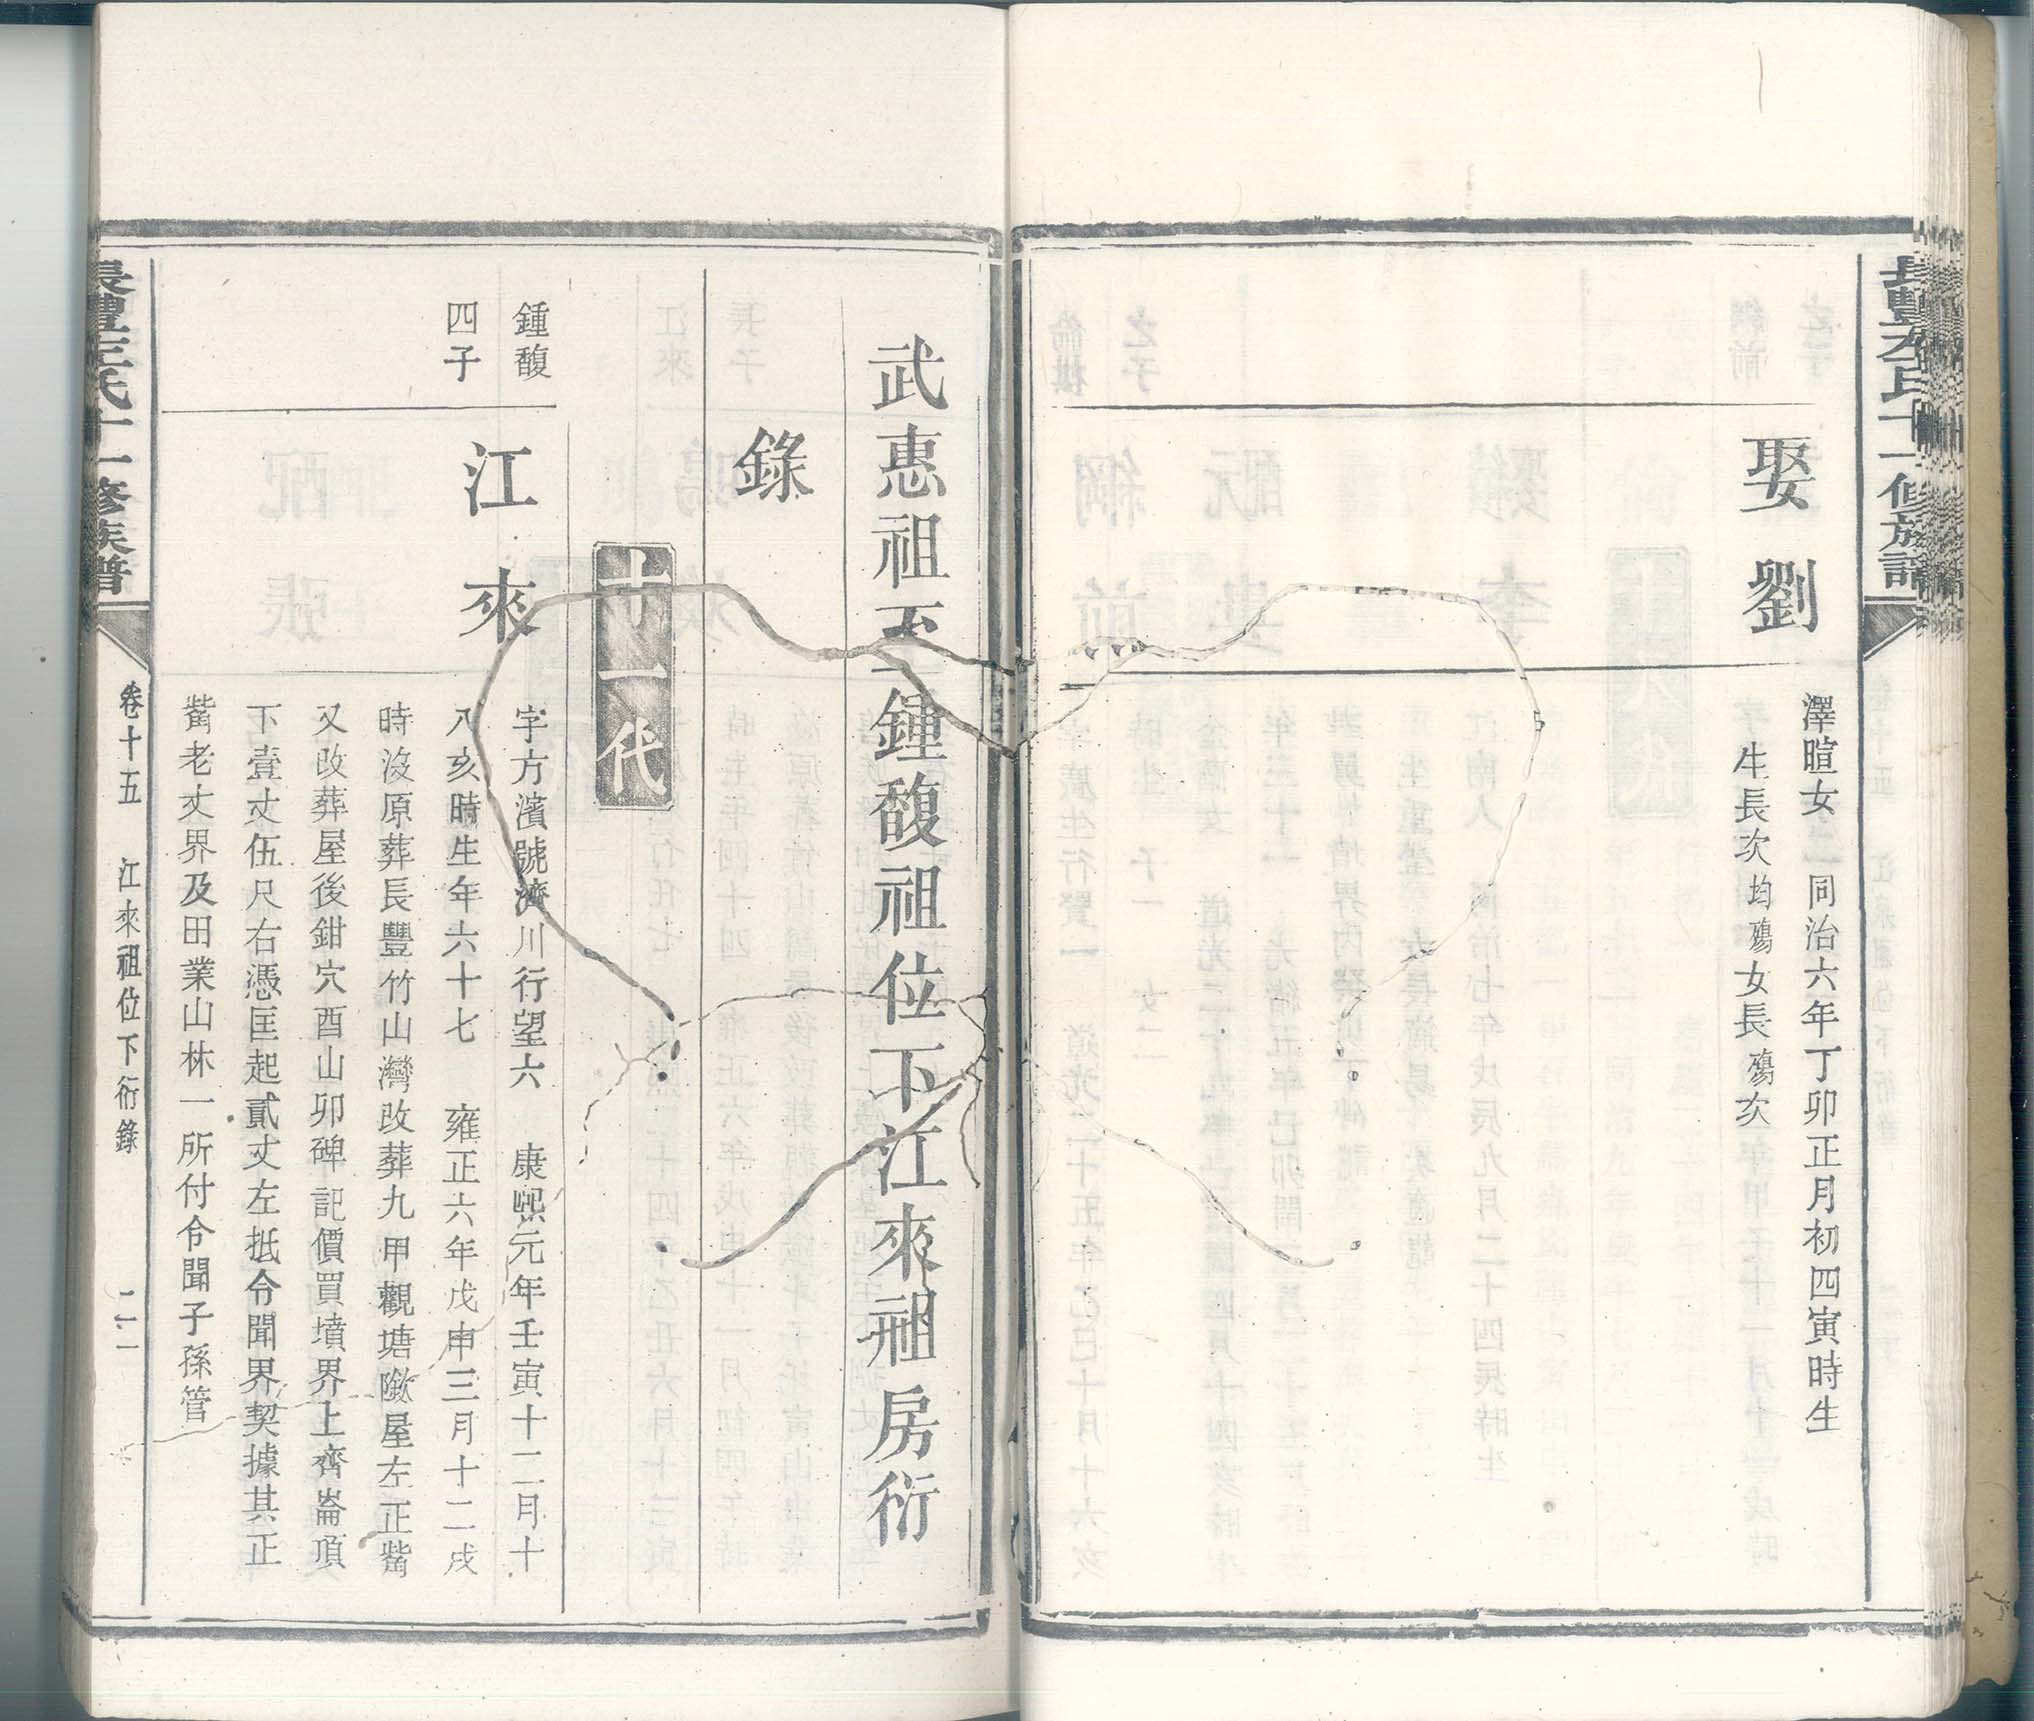 娶劉
澤暄女 同治六年丁卯正月初四寅時生
生長次均殤女長殤次
武惠祖下鍾馥祖位下江來祖房衍
錄
十一代
鍾馥
四子
江來
字方濱號濟川行望六 康熙元年壬寅十二月十
八亥時生年六十七 雍正六年戊申三月十二戌
時沒原葬長豐竹山灣改葬九甲觀塘墈屋左正觜
又改葬屋後鉗穴酉山卯碑記價買墳界上齊崙頂
下壹丈伍尺右憑匡起貳丈左抵令聞界契據其正
觜老丈界及田業山林一所付令聞子孫管
氏十一修族譜
卷十五 江來祖位下衍錄 二一